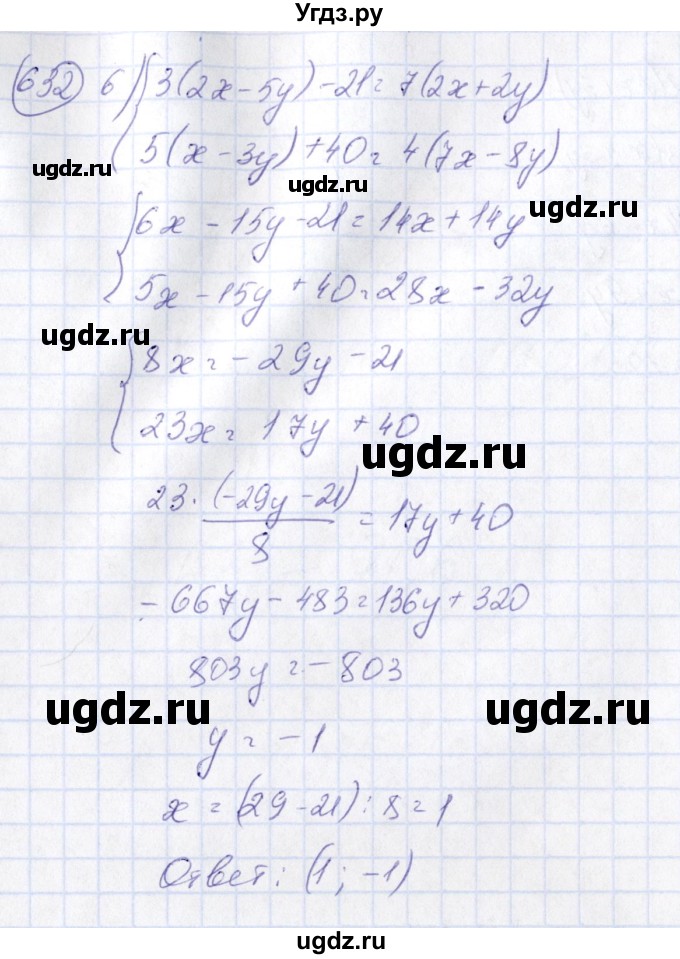 Угдз.ру
632 б) { 3(2x-5y)-21=7(2x+2y)
5(x-3y)+40=4(7x-8y)
ugdz.ru ugdz.ru
{ 6x-15y-21=14x+14y
5x-15y+40=28x-32y
ugdz.ru
{ 8x=-29y-21
23x=17y+40
ugdz.ru
23·(-29y-21)/8=17y+40
-667y-483=136y+320
803y=-803
ugdz.ru ugdz.ru
y=-1
x=(29-21):8=1
Ответ: (1; -1)
ugdz.ru